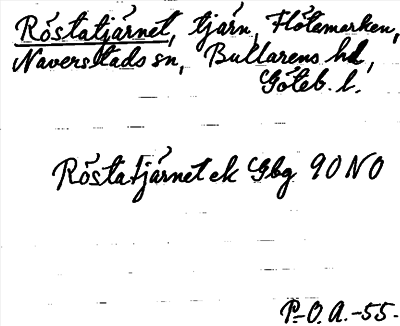 Röstatjärnet, tjärn, Flötemarken,
Naverstads sn, Bullarens hd,
Göteb. l.
Röstatjärnet ek Gbg 90 NO
P.-O. A. -55.